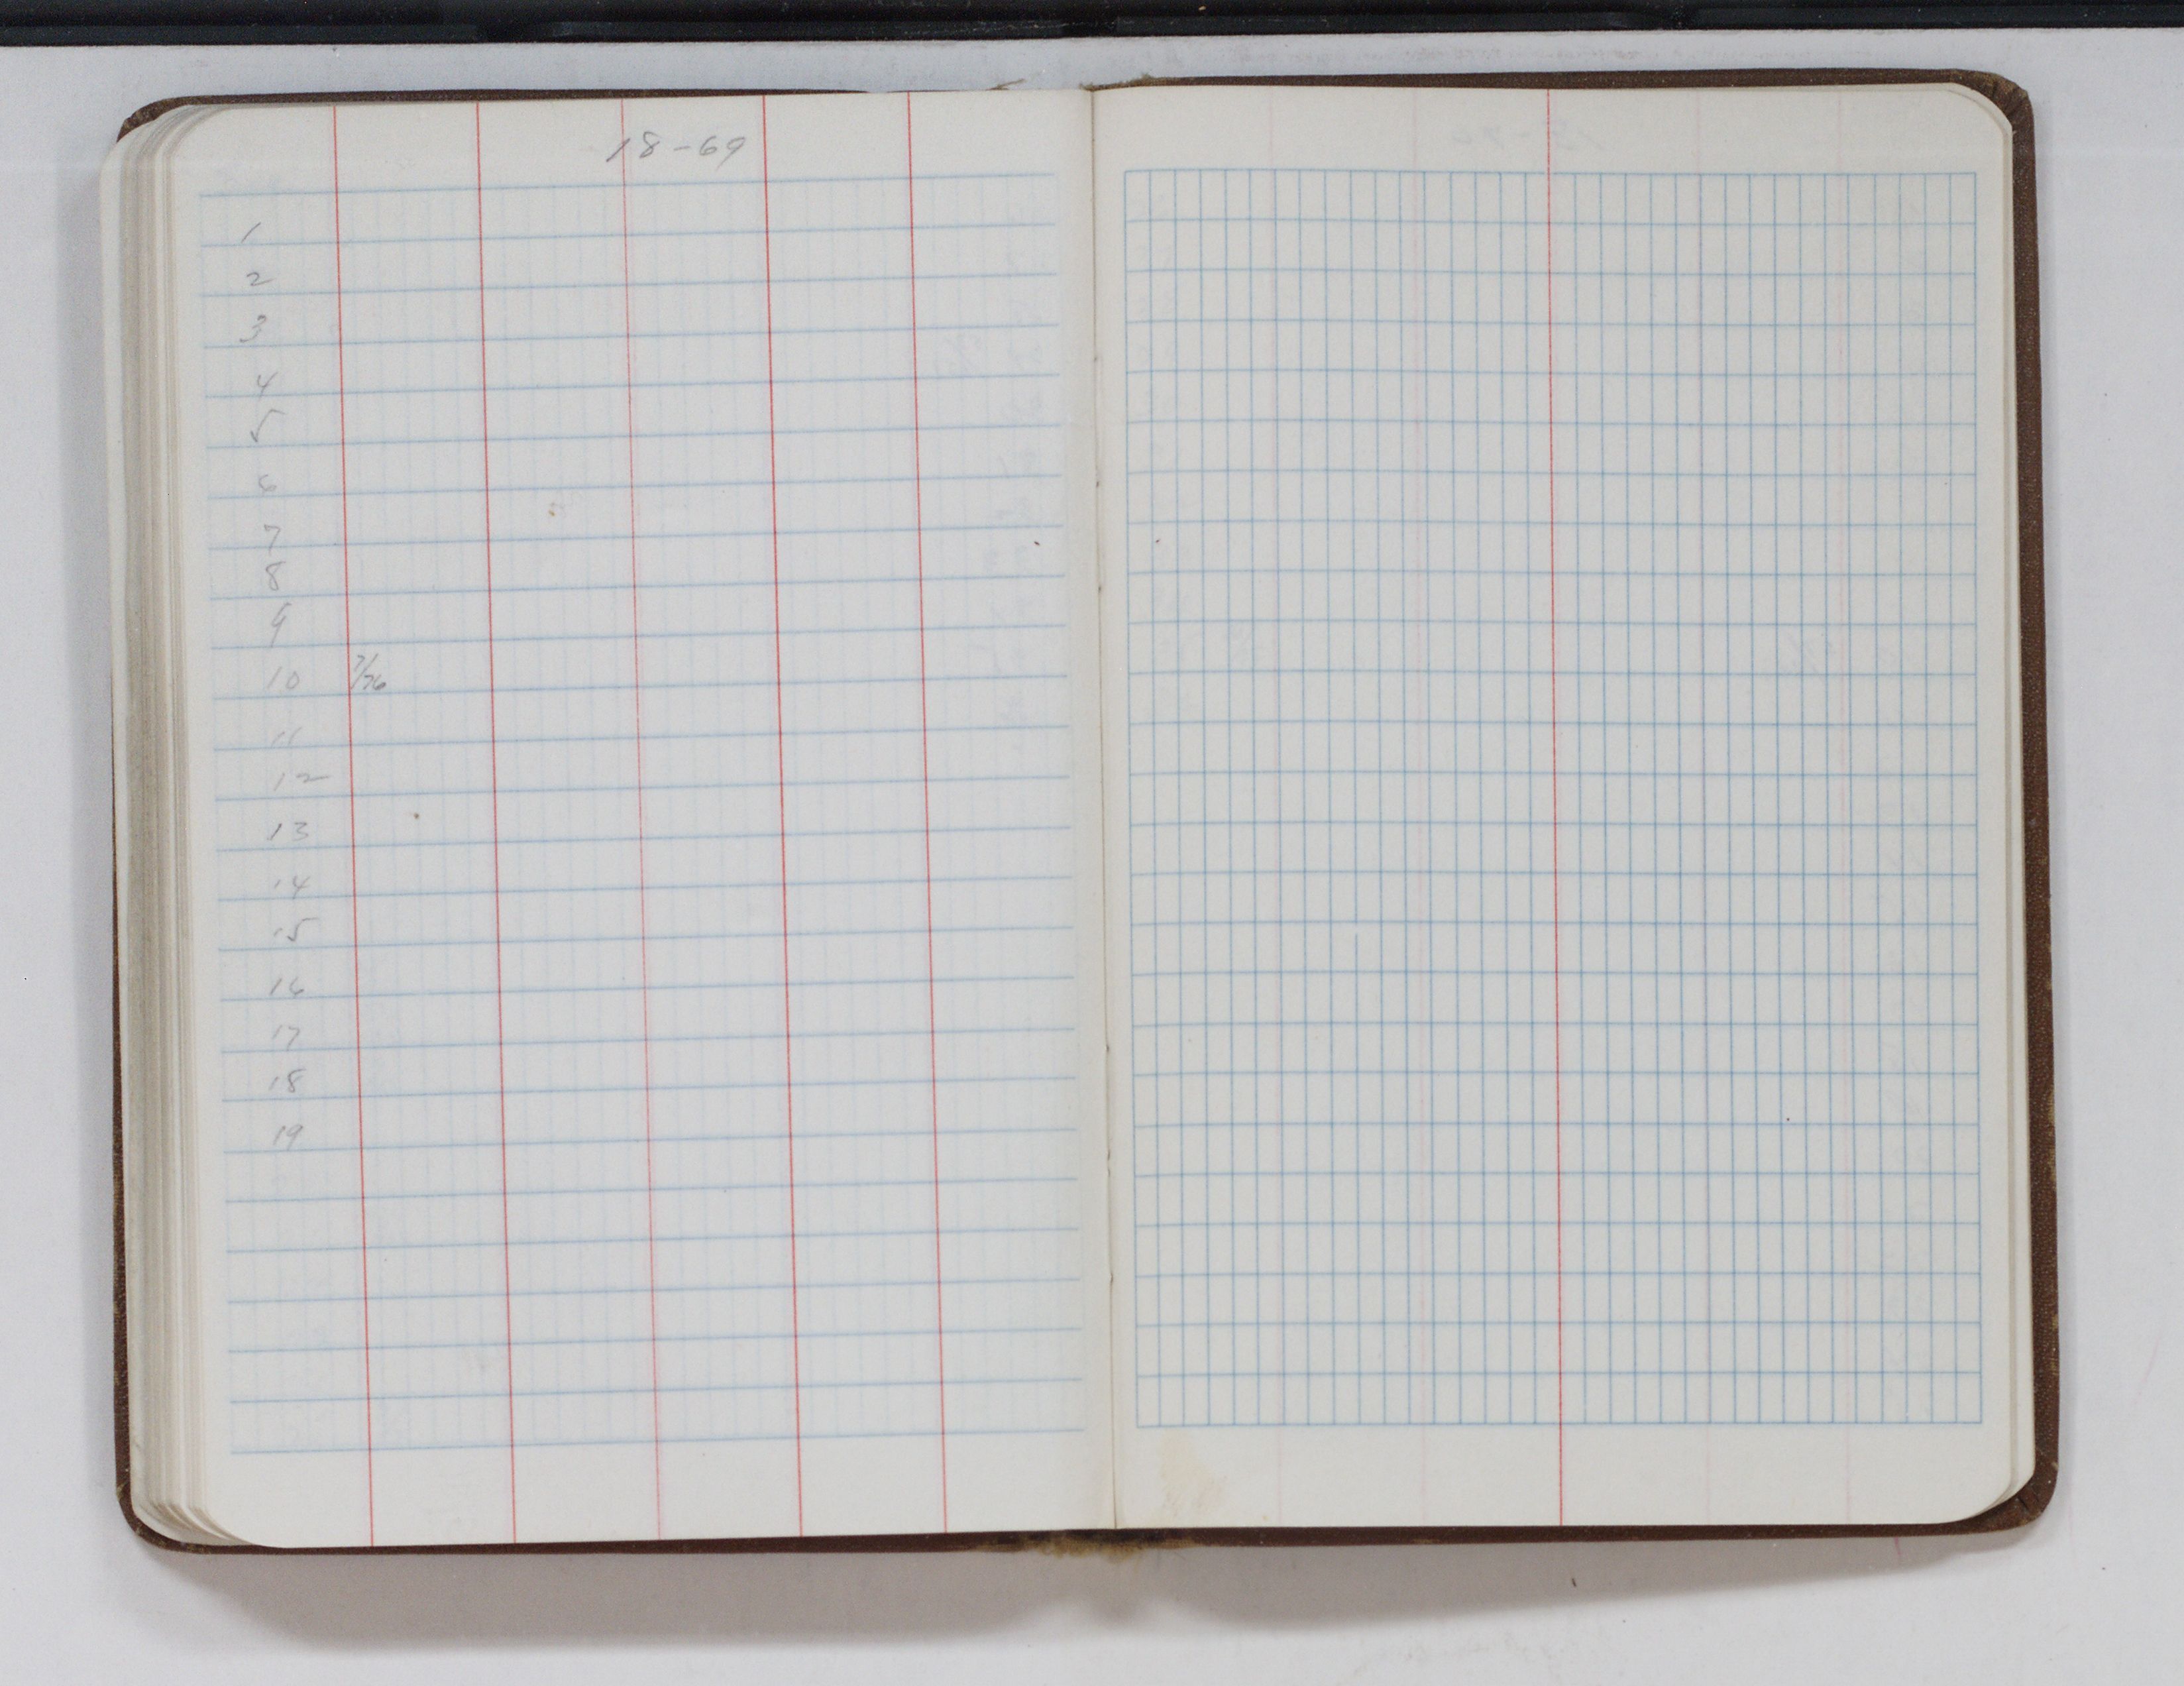 18-69
1
2
3
4
5
6
7
8
9
10 7/76
11
12
13
14
15
16
17
18
19